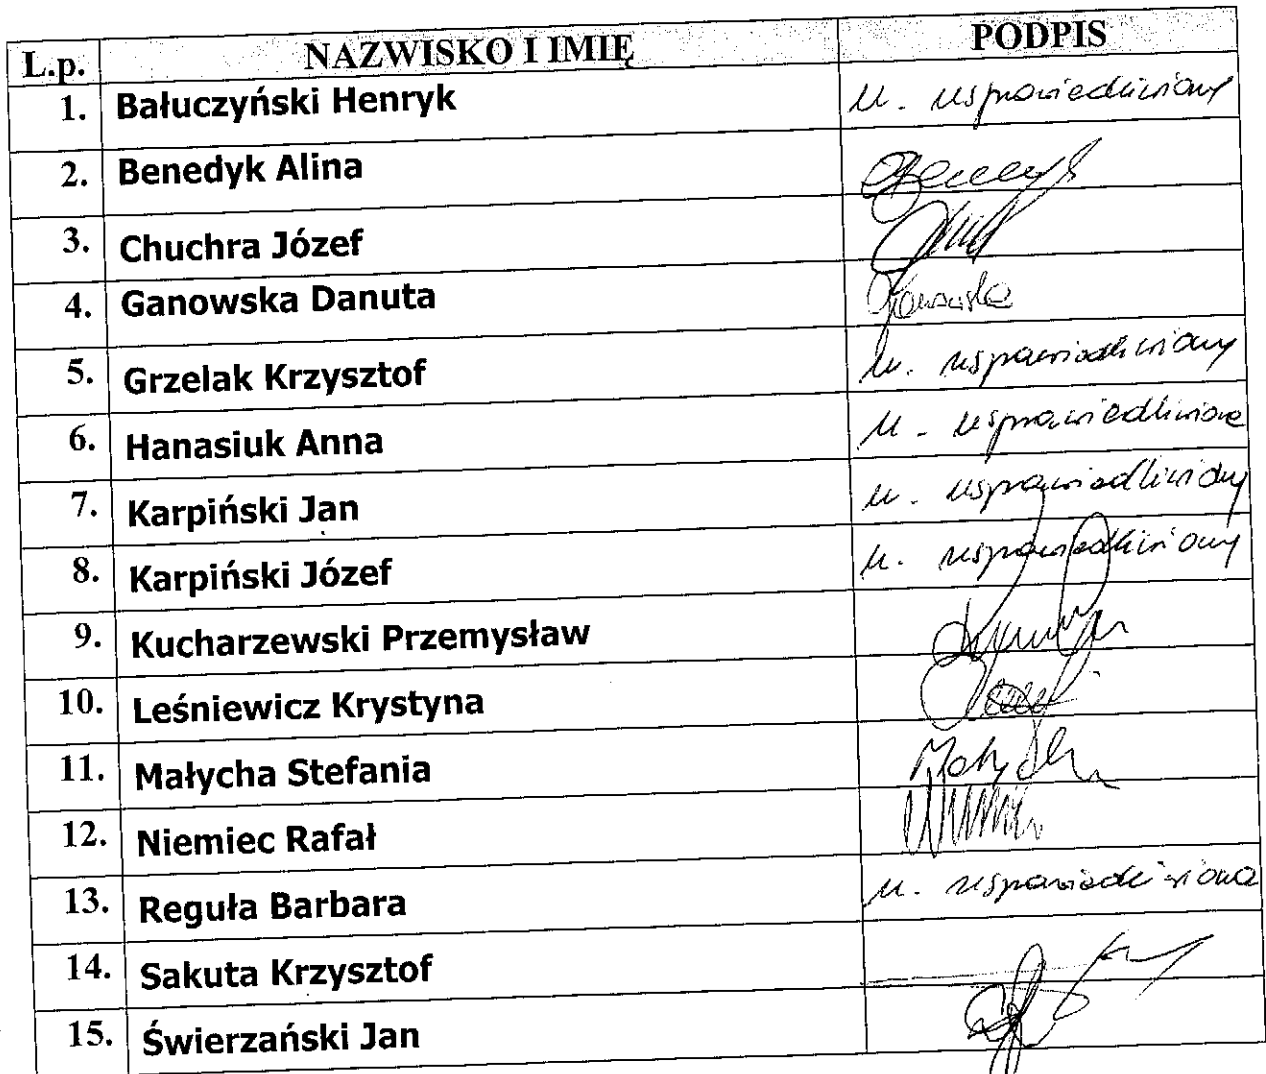 L.p. NAZWISKO I IMIĘ PODPIS
1. Bałuczyński Henryk n. usprawiedliwiony
2. Benedyk Alina
3. Chuchra Józef
4. Ganowska Danuta Ganowska
5. Grzelak Krzysztof n. usprawiedliwiony
6. Hanasiuk Anna n. usprawiedliwiona
7. Karpiński Jan n. usprawiedliwiony
8. Karpiński Józef n. usprawiedliwiony
9. Kucharzewski Przemysław
10. Leśniewicz Krystyna
11. Małycha Stefania
12. Niemiec Rafał
13. Reguła Barbara n. usprawiedliwiona
14. Sakuta Krzysztof
15. Świerzański Jan